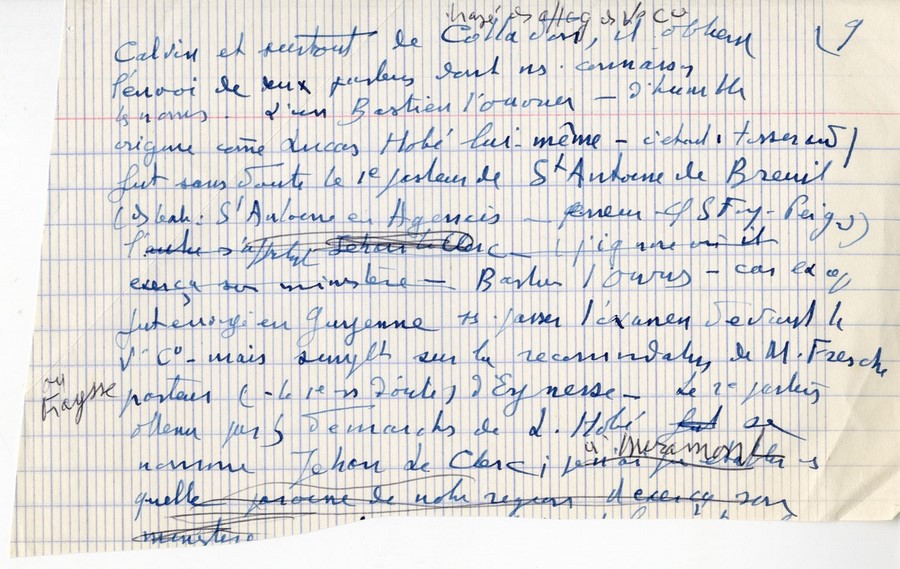 9
Calvin et surtout de Colladon, il obtient
l'envoi de deux pasteurs dont ns. connaissons
les noms. L'un Bastien l'ouvrier — d'humble
origine côe Lucas Hobé lui-même — était tisserand
fut sans doute le 1e pasteur de St Antoine de Breuil
St Antoine en Agenais — erreur - cf St Foy-
l'autre s'appelait Jehan le Clerc — j'ignore où il
exerça son ministère — Bastien l'ouvrier — cas excep
fut envoyé en Guyenne ss. passer l'examen devant la
Vle Cie - mais simplt sur la recommandation de M. Fresche
ou
Fraysse
pasteur (- le 1e ss doute) d'Eynesse — Le 2e pasteur
obtenu par les démarches de L. Hobé fut se
à Miramont
nomme Jehan Le Clerc ;
quelle paroisse de notre région il exerça son
ministère